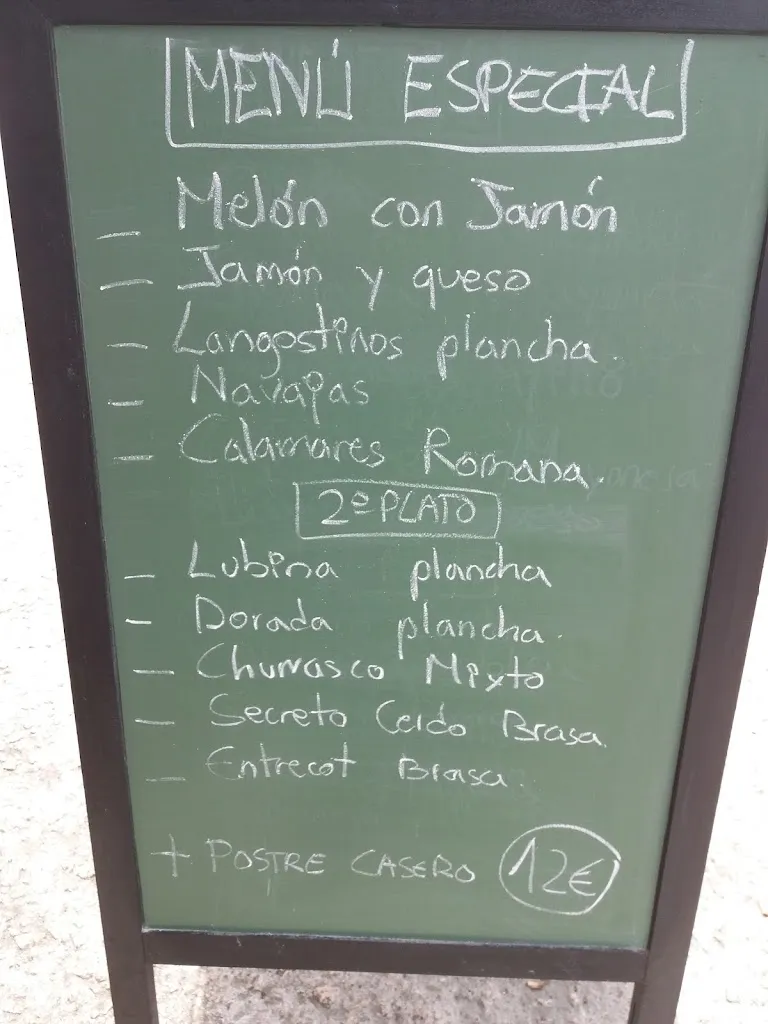 MENÚ ESPECIAL
- Melón con Jamón
- Jamón y queso
- Langostinos plancha.
- Navajas
- Calamares Romana.
2º PLATO
- Lubina plancha
- Dorada plancha.
- Churrasco Mixto
- Secreto Cerdo Brasa.
- Entrecot Brasa.
+ POSTRE CASERO 12€